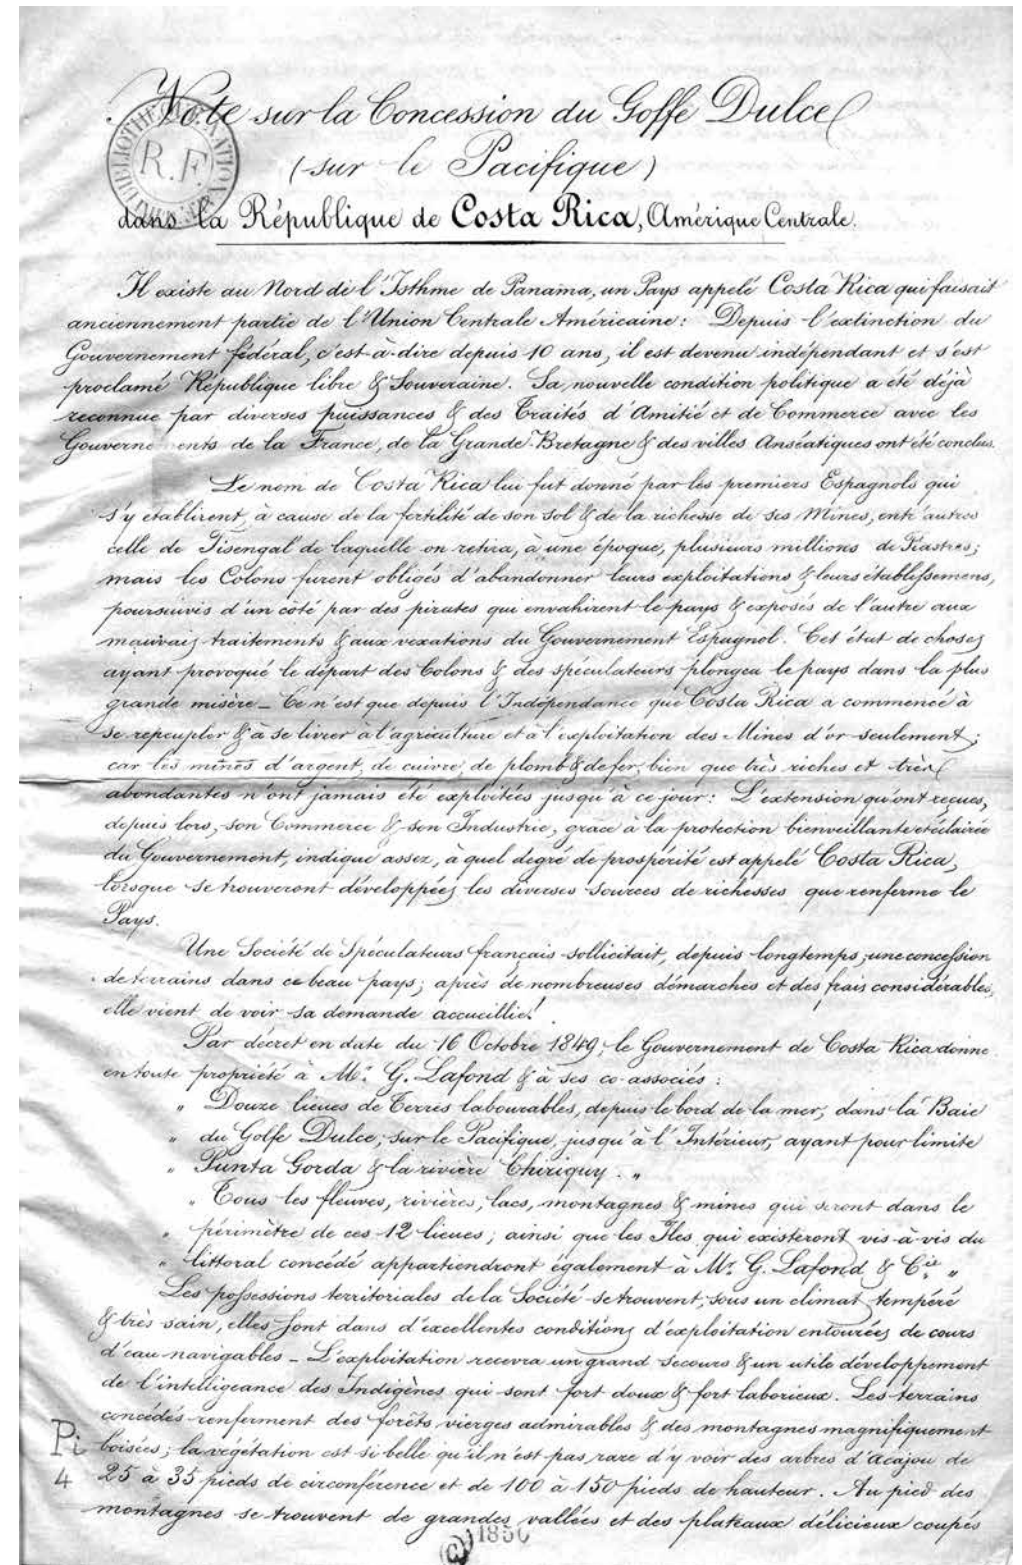 Note sur la Concession du Golfe Dulce
(sur le Pacifique)
dans la République de Costa Rica, Amérique Centrale.
BIBLIOTHÈQUE NATIONALE
R.F.
Il existe au Nord de l'Isthme de Panama, un Pays appelé Costa Rica qui faisait
anciennement partie de l'Union Centrale Américaine: Depuis l'extinction du
Gouvernement fédéral, c'est-à-dire depuis 10 ans, il est devenu indépendant et s'est
proclamé République libre & Souveraine. Sa nouvelle condition politique a été déjà
reconnue par diverses puissances & des Traités d'Amitié et de Commerce avec les
Gouverne ents de la France, de la Grande-Bretagne & des villes Anséatiques ont été conclus.
Le nom de Costa Rica lui fut donné par les premiers Espagnols qui
s'y établirent, à cause de la fertilité de son sol & de la richesse de ses Mines, entr'autres
celle de Tisengal de laquelle on retira, à une époque, plusieurs millions de Piastres;
mais les Colons furent obligés d'abandonner leurs exploitations & leurs établissemens,
poursuivis d'un côté par des pirates qui envahirent le pays & exposés de l'autre aux
mauvais traitements & aux vexations du Gouvernement Espagnol. Cet état de choses
ayant provoqué le départ des Colons & des spéculateurs plongea le pays dans la plus
grande misère_ Ce n'est que depuis l'Indépendance que Costa Rica a commencé à
se repeupler & à se livrer à l'agriculture et à l'exploitation des Mines d'or seulement;
car les mines d'argent, de cuivre, de plomb & de fer, bien que très riches et très
abondantes n'ont jamais été exploitées jusqu'à ce jour: L'extension qu'ont reçues,
depuis lors, son Commerce & son Industrie, grâce à la protection bienveillante et éclairée
du Gouvernement, indique assez, à quel degré de prospérité est appelé Costa Rica,
lorsque se trouveront développées les diverses sources de richesses que renferme le
Pays.
Une Société de Spéculateurs français sollicitait, depuis longtemps, une concession
de terrains dans ce beau pays; après de nombreuses démarches et des frais considérables,
elle vient de voir sa demande accueillie!
Par décret en date du 16 Octobre 1849, le Gouvernement de Costa Rica donne
en toute propriété à Mr. G. Lafond & à ses co-associés:
" Douze lieues de Terres labourables, depuis le bord de la mer, dans la Baie
" du Golfe Dulce, sur le Pacifique, jusqu'à l'Intérieur, ayant pour limite
" Punta Gorda & la rivière Chiriquy. "
" Tous les fleuves, rivières, lacs, montagnes & mines qui seront dans le
" périmètre de ces 12 lieues; ainsi que les Îles qui existeront vis-à-vis du
" littoral concédé appartiendront également à Mr. G. Lafond & Cie. "
Les possessions territoriales de la Société se trouvent, sous un climat tempéré
& très sain, elles sont dans d'excellentes conditions d'exploitation entourées de cours
d'eau navigables _ L'exploitation recevra un grand secours & un utile développement
de l'intelligeance des Indigènes qui sont fort doux & fort laborieux. Les terrains
concédés renferment des forêts vierges admirables & des montagnes magnifiquement
boisées; la végétation est si belle qu'il n'est pas rare d'y voir des arbres d'Acajou de
25 à 35 pieds de circonférence et de 100 à 150 pieds de hauteur. Au pied des
montagnes se trouvent de grandes vallées et des plateaux délicieux coupés
Pi
4
1850